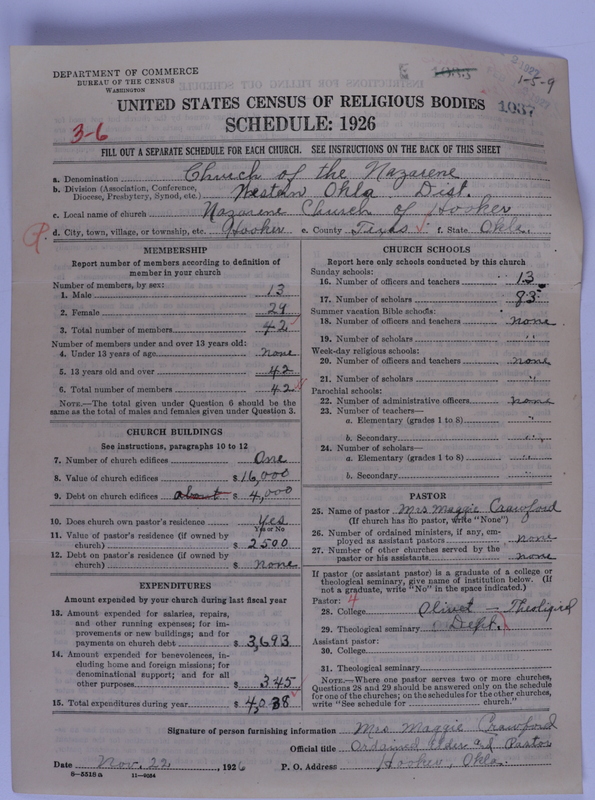 DEPARTMENT OF COMMERCE
BUREAU OF THE CENSUS
WASHINGTON
1-5-9
UNITED STATES CENSUS OF RELIGIOUS BODIES
1037
3-6
SCHEDULE: 1926
FILL OUT A SEPARATE SCHEDULE FOR EACH CHURCH. SEE INSTRUCTIONS ON THE BACK OF THIS SHEET
a. Denomination Church of the Nazarene
b. Division (Association, Conference, Diocese, Presbytery, Synod, etc.) Western Okla Dist.
c. Local name of church Nazarene Church of Hooker
d. City, town, village, or township, etc. Hooker e. County Texas f. State Okla.
MEMBERSHIP
Report number of members according to definition of
member in your church
Number of members, by sex:
1. Male 13
2. Female 29
3. Total number of members 42
Number of members under and over 13 years old:
4. Under 13 years of age none
5. 13 years old and over 42
6. Total number of members 42
NOTE.—The total given under Question 6 should be the
same as the total of males and females given under Question 3.
CHURCH BUILDINGS
See instructions, paragraphs 10 to 12
7. Number of church edifices One
8. Value of church edifices $ 16,000
9. Debt on church edifices about $ 4,000
10. Does church own pastor's residence Yes
Yes or No
11. Value of pastor's residence (if owned by
church) $ 2500
12. Debt on pastor's residence (if owned by
church) $ None
EXPENDITURES
Amount expended by your church during last fiscal year
13. Amount expended for salaries, repairs,
and other running expenses; for im-
provements or new buildings; and for
payments on church debt $ 3,693
14. Amount expended for benevolences, in-
cluding home and foreign missions; for
denominational support; and for all
other purposes $ 345
15. Total expenditures during year $ 4,038
CHURCH SCHOOLS
Report here only schools conducted by this church
Sunday schools:
16. Number of officers and teachers 13
17. Number of scholars 83
Summer vacation Bible schools:
18. Number of officers and teachers none
19. Number of scholars "
Week-day religious schools:
20. Number of officers and teachers none
21. Number of scholars "
Parochial schools:
22. Number of administrative officers none
23. Number of teachers—
a. Elementary (grades 1 to 8) "
b. Secondary "
24. Number of scholars—
a. Elementary (grades 1 to 8) "
b. Secondary "
PASTOR
25. Name of pastor Mrs Maggie Crawford
(If church has no pastor, write "None")
26. Number of ordained ministers, if any, em-
ployed as assistant pastors none
27. Number of other churches served by the
pastor or his assistants none
If pastor (or assistant pastor) is a graduate of a college or
theological seminary, give name of institution below. (If
not a graduate, write "No" in the space indicated.)
Pastor: 4
28. College Olivet - Theological
29. Theological seminary Dept.
Assistant pastor:
30. College
31. Theological seminary
NOTE.—Where one pastor serves two or more churches,
Questions 28 and 29 should be answered only on the schedule
for one of the churches; on the schedules for the other churches,
write "See schedule for church."
Signature of person furnishing information Mrs Maggie Crawford
Official title Ordained Elder and Pastor
Date Nov. 22, 1926 P. O. Address Hooker, Okla.
8—5518 a 11—9054